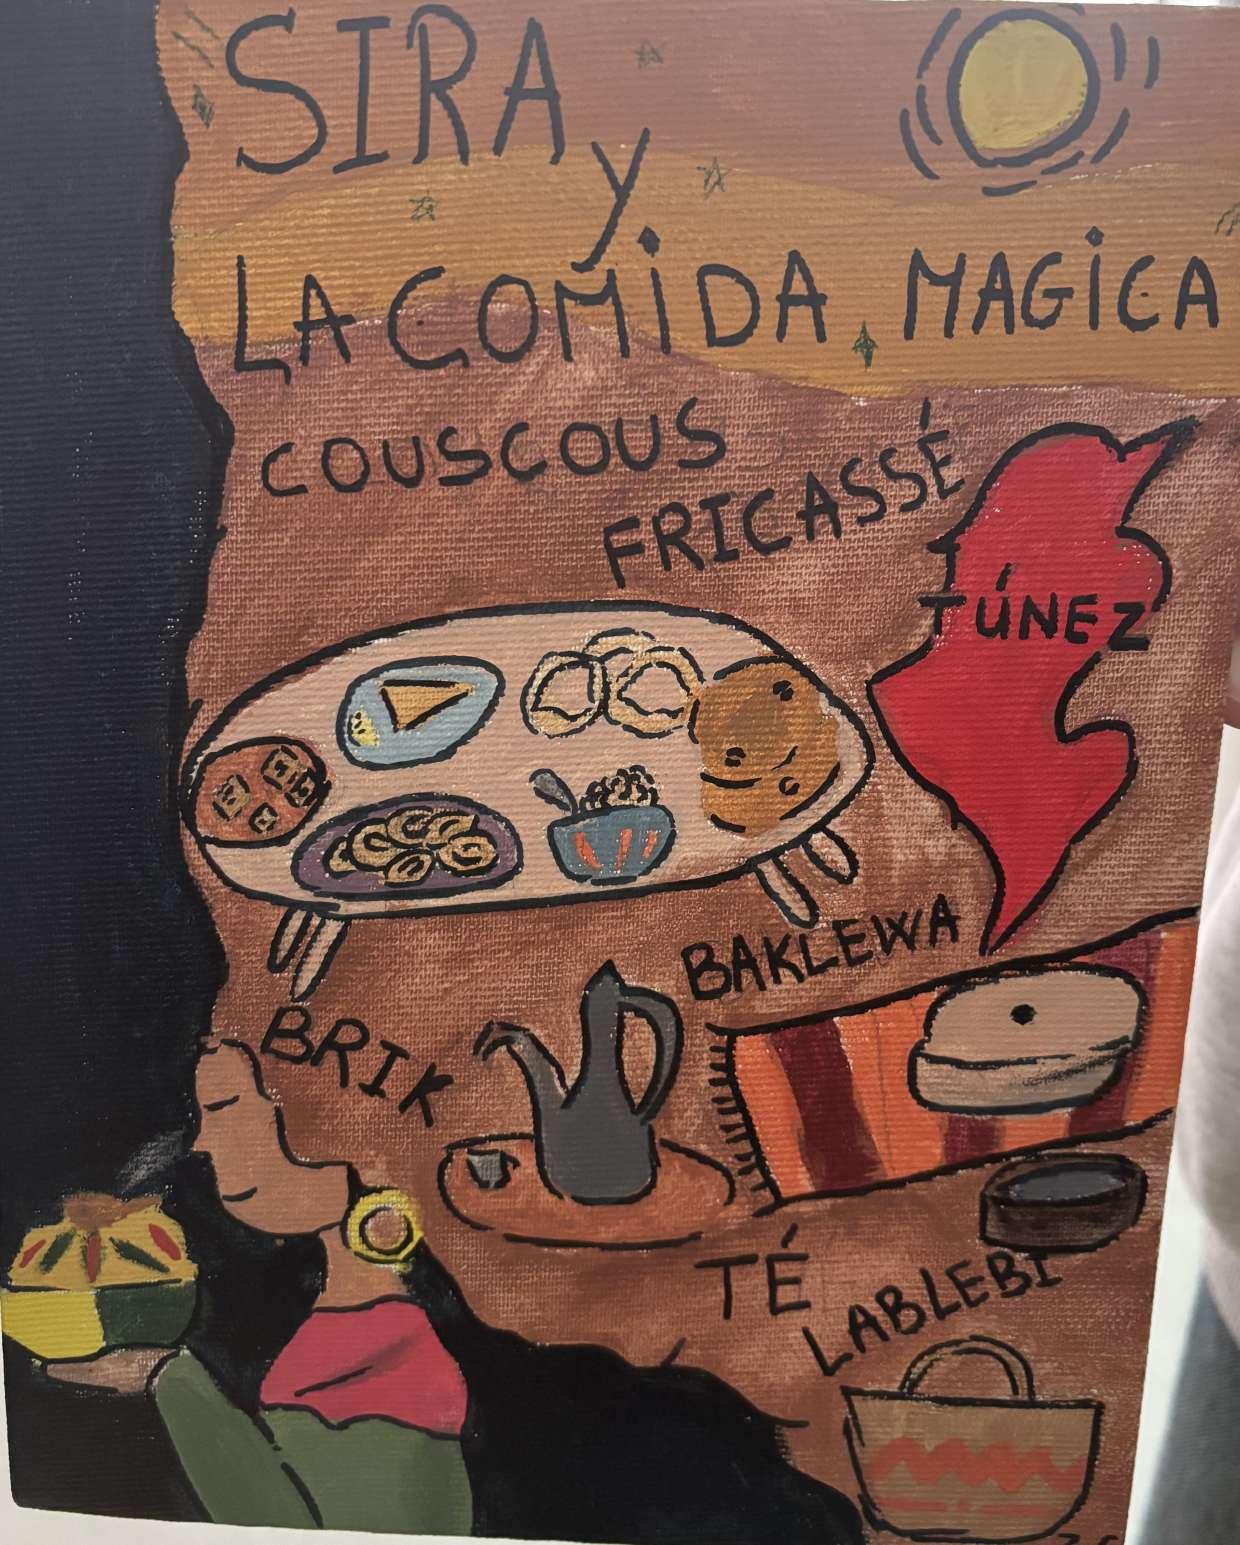 SIRA
y
LA COMIDA MAGICA
COUSCOUS
FRICASSÉ
TÚNEZ
BAKLEWA
BRIK
TÉ
LABLEBI